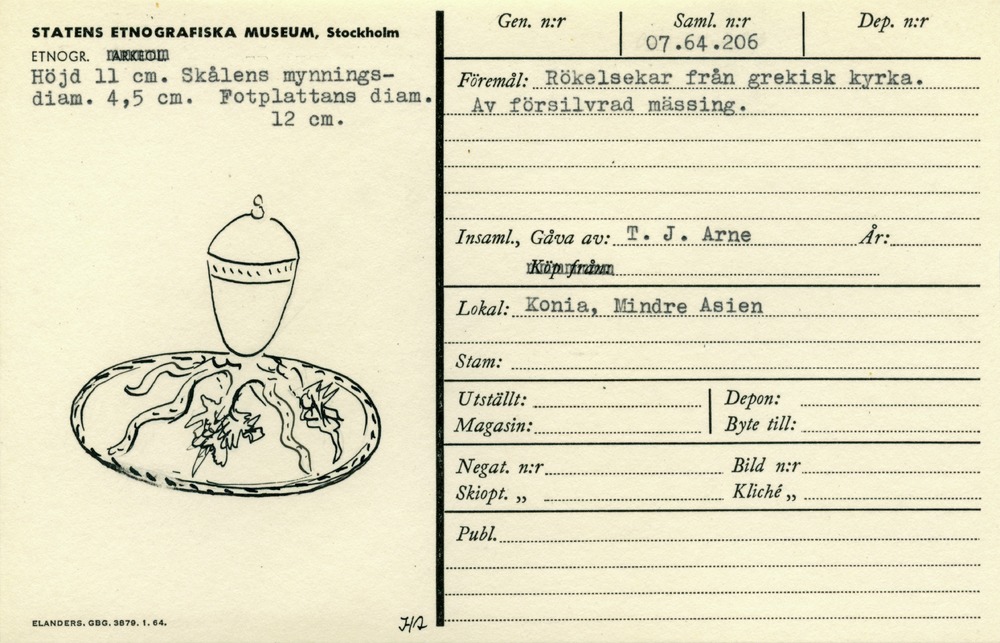 STATENS ETNOGRAFISKA MUSEUM, Stockholm
ETNOGR. ARKEOL.
Höjd 11 cm. Skålens mynnings-
diam. 4,5 cm. Fotplattans diam.
12 cm.
ELANDERS. GBG. 3879. 1. 64.
Gen. n:r Saml. n:r Dep. n:r
07.64.206
Föremål: Rökelsekar från grekisk kyrka.
Av försilvrad mässing.
Insaml., Gåva av: T. J. Arne År:
Köp från:
Lokal: Konia, Mindre Asien
Stam:
Utställt: Depon:
Magasin: Byte till:
Negat. n:r Bild n:r
Skiopt. „ Kliché „
Publ.